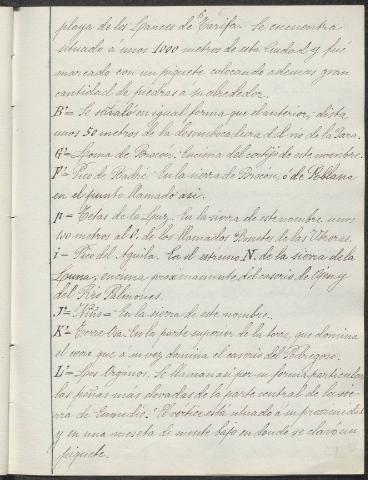 playa de los Lances de Tarifa. Se encuentra
situado a unos 1000 metros de esta Ciudad y fué
marcado con un piquete colocando ademas gran
cantidad de piedras a su alrededor.
B'= Se señaló en igual forma que el anterior, dista
unos 50 metros de la desembocadura del rio de la Jara.
G'= Loma de Bracón. Encima del cortijo de este nombre.
F'= Pico de Padre. En la sierra de Bracón, ó de Poblana
en el punto llamado asi.
n = Tetas de la Luz. En la sierra de este nombre unos
100 metros al O. de los llamados Bonetes de las
i = Pico del Aguila. En el estremo N. de la sierra de la
Luna, encima proximamente, del caserio de Ojen y
del Rio Palmones.
J'= En la sierra de este nombre.
K'= Torre En la parte superior de la torre, que domina
el cerro que a su vez domina el caserio del Pedregoso.
L'= Los Organos. Se llaman asi por su forma particular
las peñas mas elevadas de la parte central de la sie-
rra de El vértice esta situado á su proximidad
y en una meseta de monte bajo en donde se clavó un
piquete.